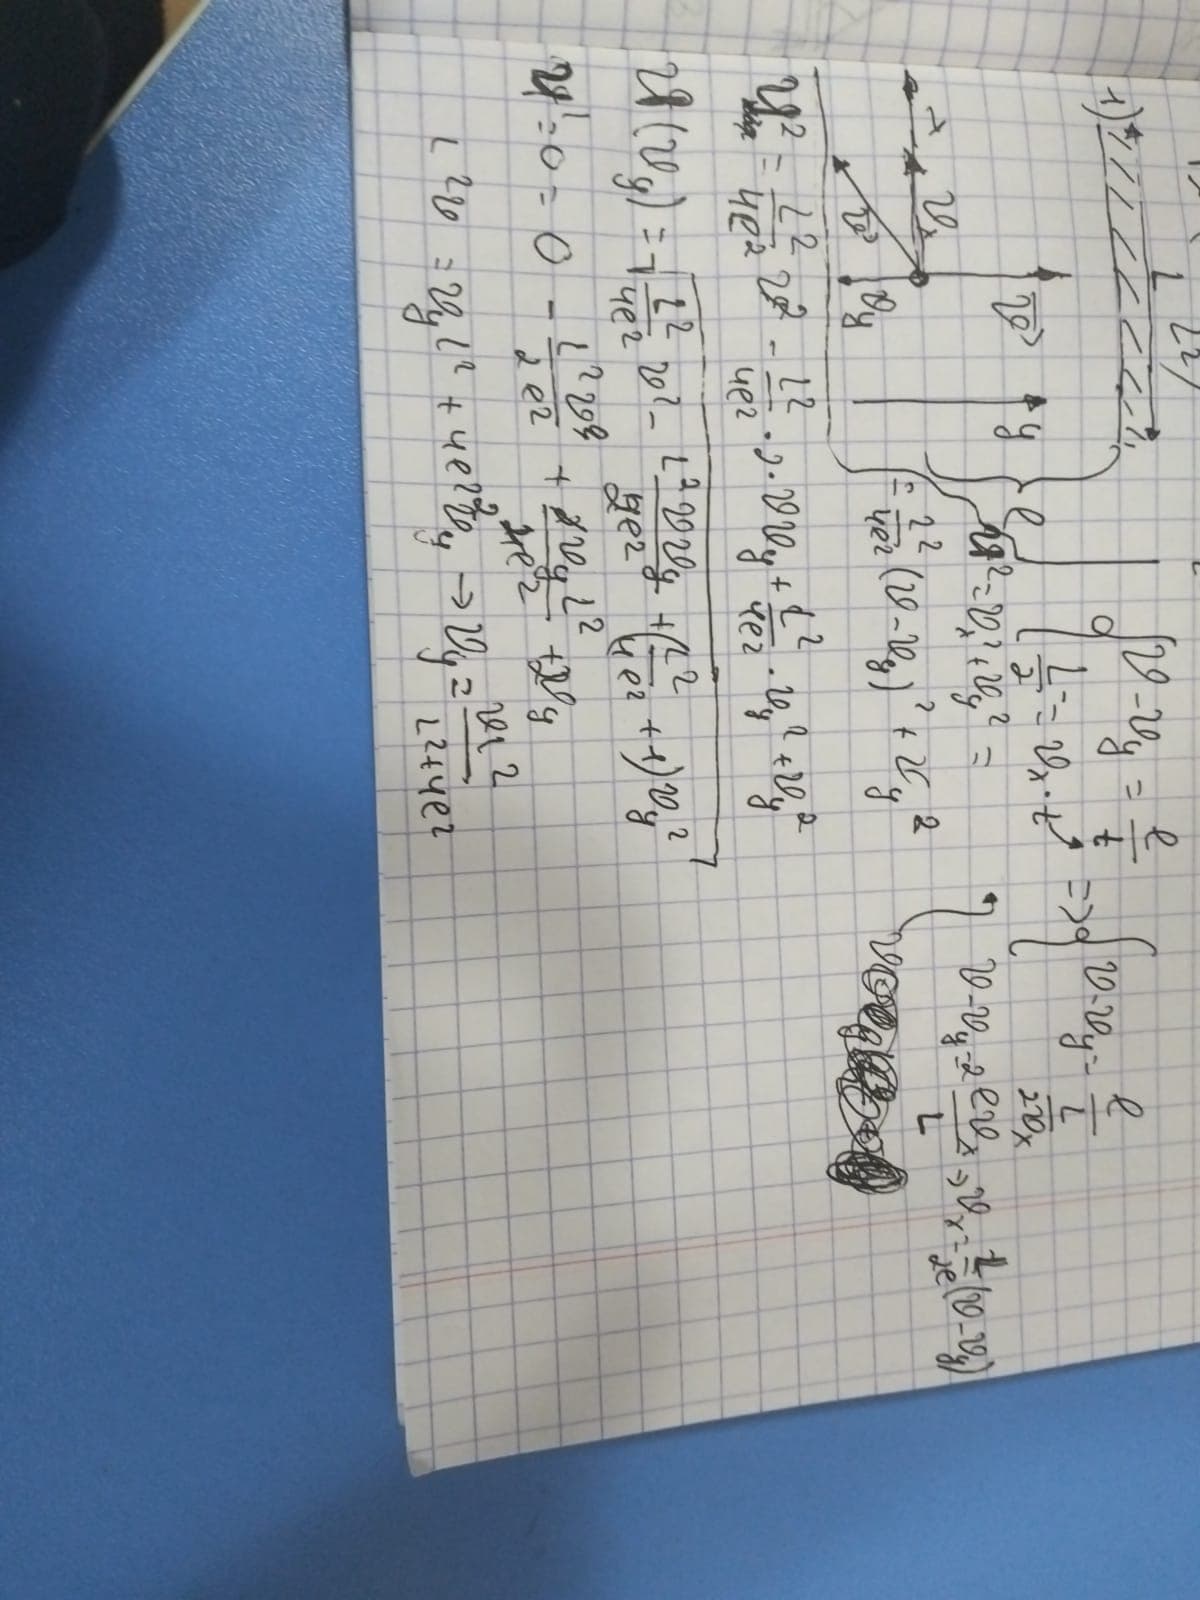 1)
L
l
v⃗
y
x
vₓ
v⃗
v_y
{ v - v_y = l/t
{ L/2 = vₓ · t
=> { v - v_y = l / (L/2vₓ)
v - v_y = 2lvₓ/L => vₓ = L/2l (v - v_y)
v² = vₓ² + v_y² =
= L²/4l² (v - v_y)² + v_y²
v² = L²/4l² v² - L²/4l² · 2 · v v_y + L²/4l² · v_y² + v_y²
v(v_y) = √(L²/4l² v² - L² v v_y/2l² + (L²/4l² + 1) v_y²)
v' = 0 = 0 - L² v/2l² + v_y L²/2l² + 2v_y
L² v = v_y L² + 4l² v_y => v_y = vL²/(L² + 4l²)